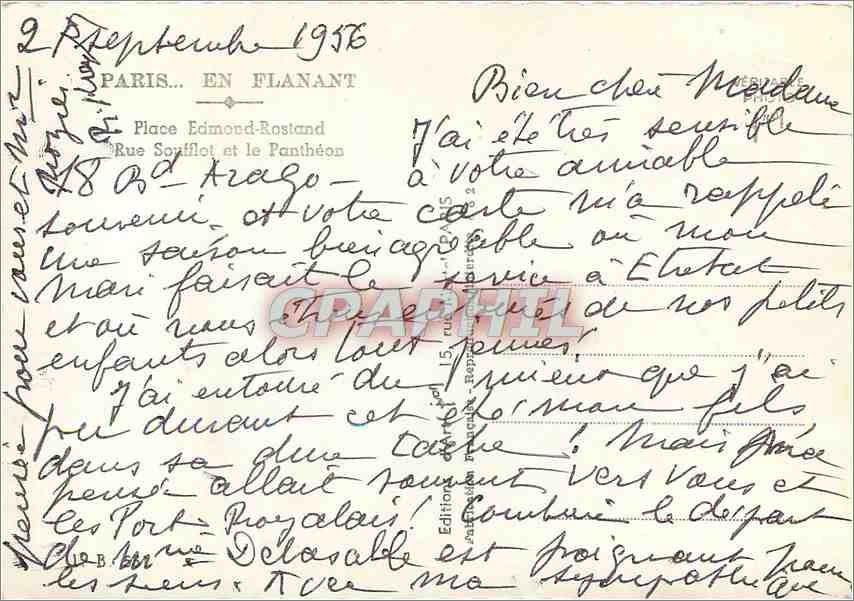 2 Septembre 1956
PARIS... EN FLANANT
Place Edmond-Rostand
Rue Soufflot et le Panthéon
VÉRITABLE
PHOTO
Bien chère Madame
J'ai été très sensible
78 Bd Arago - à votre aimable
souvenir et votre carte m'a rappelé
une saison bien agréable où mon
mari faisait le service à Etretat
et où nous étions entourés de nos petits
enfants alors tout jeunes!
J'ai entouré du mieux que j'ai
pu durant cet été mon fils
dans sa dure tache! Mais ma
pensée allait souvent vers vous et
les Port-Royalais! Combien le départ
de Mme Delasable est poignant pour
les siens. Avec ma sympathique
pensée pour vous et Mr
Editions d'Art 15, rue PARIS
Fabrication Française - Reproduction
CPAPHIL